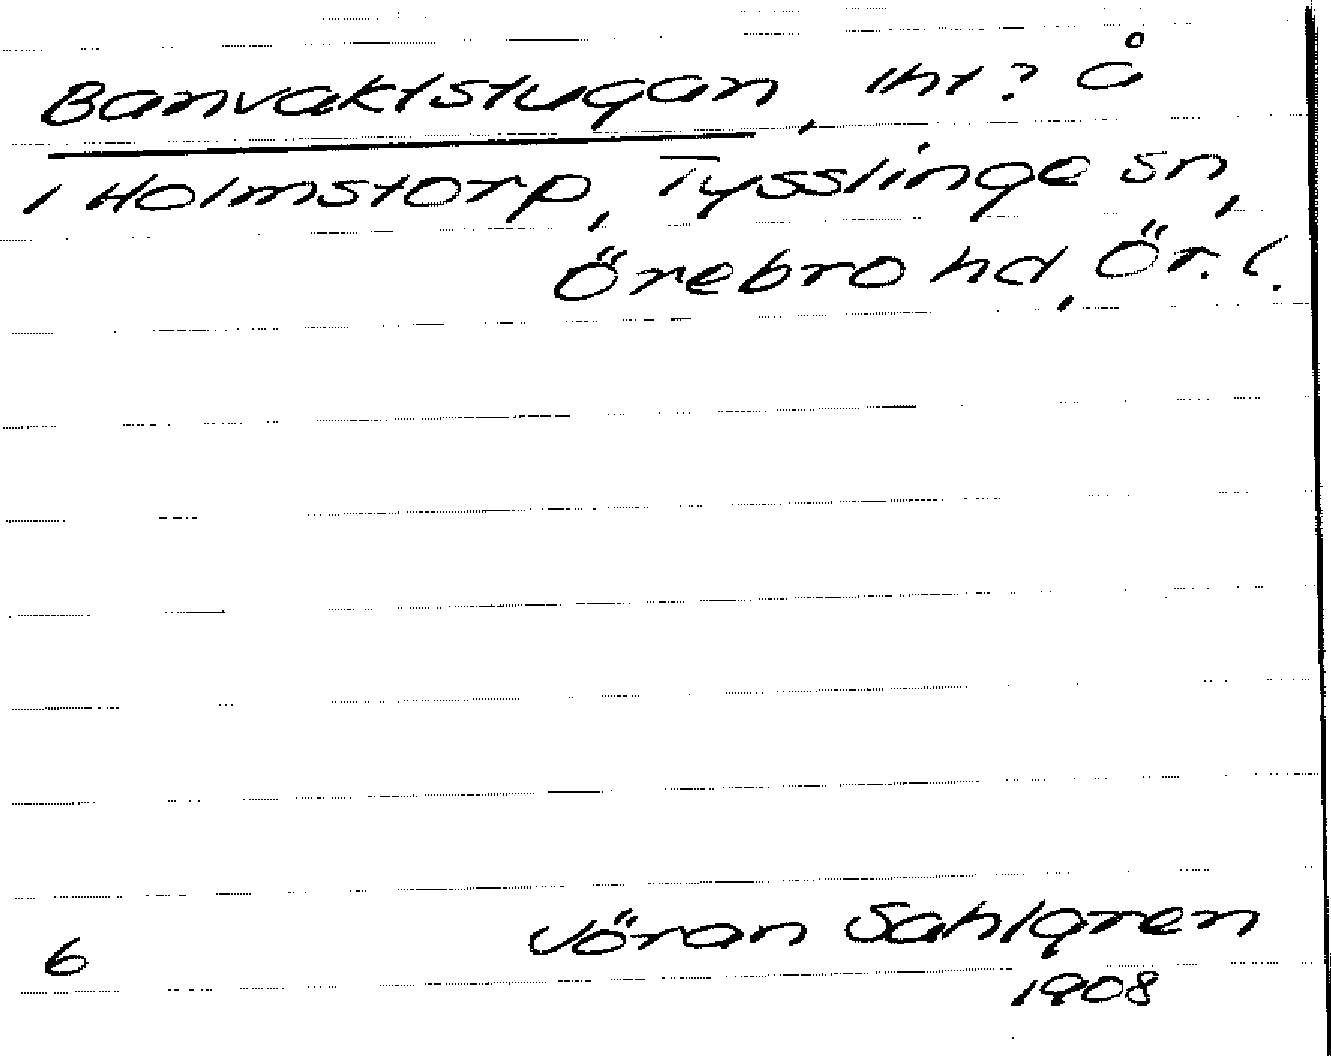 Banvaktstugan, lht? å
i Holmstorp, Tysslinge sn,
Örebro hd, Ör. l.
6
Jöran Sahlgren
1908